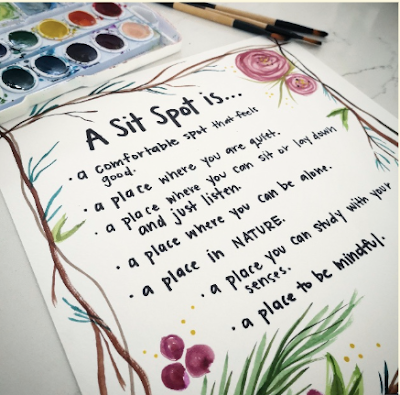 A Sit Spot is...
• a comfortable spot that feels
good.
• a place where you are quiet.
• a place where you can sit or lay down
and just listen.
• a place where you can be alone.
• a place in NATURE.
• a place you can study with your
senses.
• a place to be mindful.